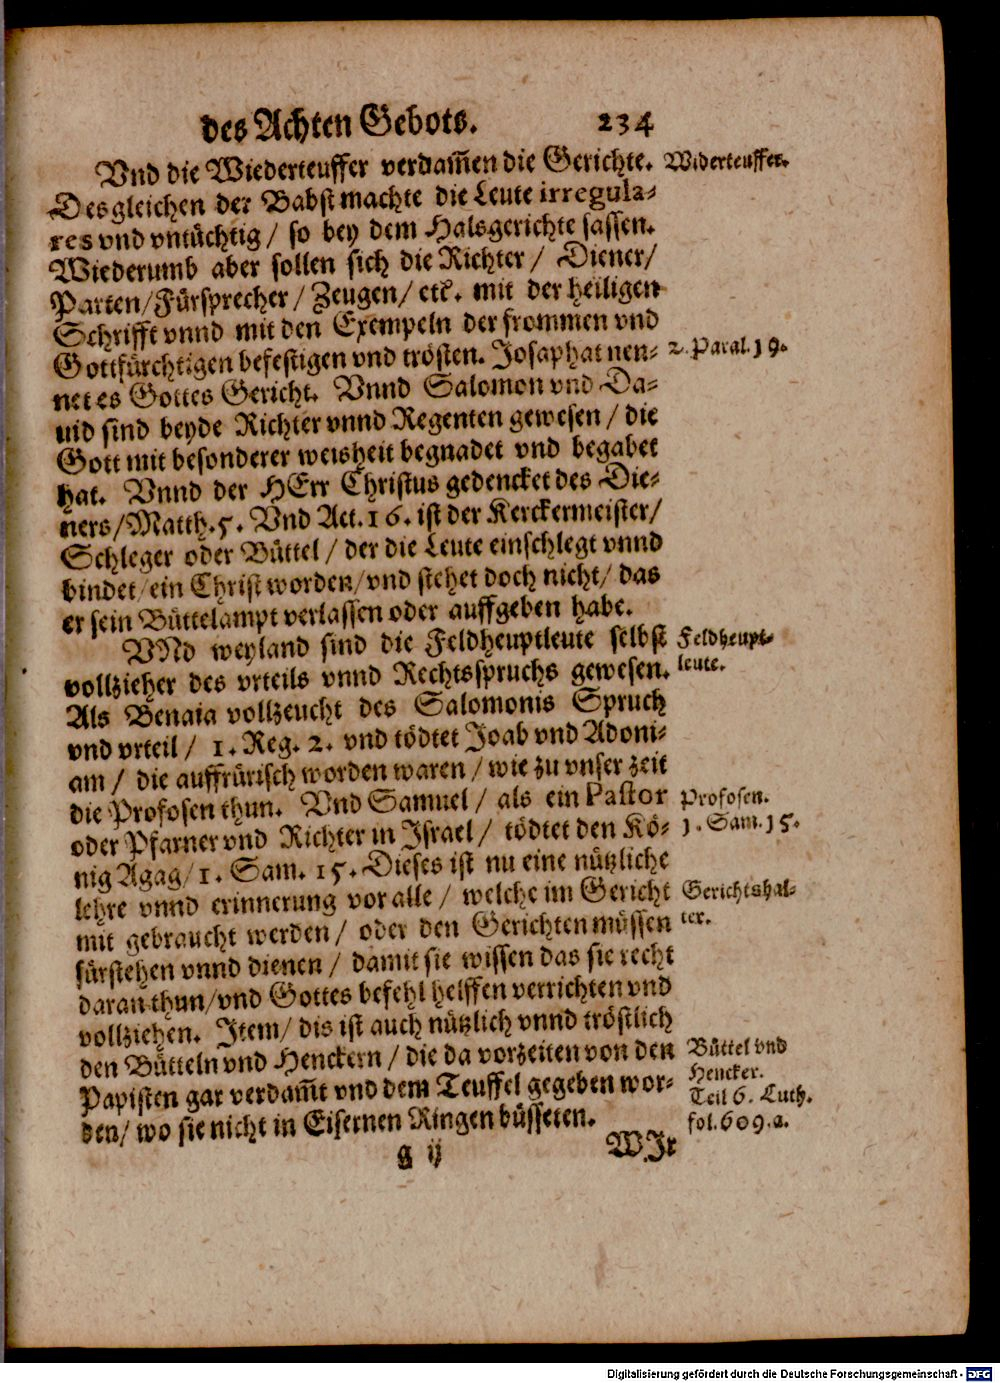 des Achten Gebots. 234
Vnd die Wiederteuffer verdam̃en die Gerichte. Widerteuffer.
Desgleichen der Babst machte die Leute irregula-
res vnd vntüchtig / so bey dem Halsgerichte sassen.
Wiederumb aber sollen sich die Richter / Diener/
Parten/Fürsprecher / Zeugen/ etc. mit der heiligen
Schrifft vnnd mit den Exempeln der frommen vnd
Gottfürchtigen befestigen vnd trösten. Josaphat nen- 2. Paral. 19.
net es Gottes Gericht. Vnnd Salomon vnd Da-
uid sind beyde Richter vnnd Regenten gewesen / die
Gott mit besonderer weisheit begnadet vnd begabet
hat. Vnnd der HErr Christus gedencket des Die-
ners/Matth. 5. Vnd Act. 16. ist der Kerckermeister/
Schleger oder Büttel / der die Leute einschlegt vnnd
bindet/ein Christ worden/vnd stehet doch nicht/ das
er sein Büttelampt verlassen oder auffgeben habe.
VNd weyland sind die Feldheuptleute selbst Feldheupt-
leute.
vollzieher des vrteils vnnd Rechtsspruchs gewesen.
Als Benaia vollzeucht des Salomonis Spruch
vnd vrteil / 1. Reg. 2. vnd tödtet Joab vnd Adoni-
am / die auffrürisch worden waren / wie zu vnser zeit
die Profosen thun. Vnd Samuel / als ein Pastor Profosen.
oder Pfarner vnd Richter in Israel / tödtet den Kö- 1. Sam. 15.
nig Agag/1. Sam. 15. Dieses ist nu eine nützliche
lehre vnnd erinnerung vor alle / welche im Gericht Gerichtshal-
ter.
mit gebraucht werden / oder den Gerichten müssen
fürstehen vnnd dienen / damit sie wissen das sie recht
daran thun/vnd Gottes befehl helffen verrichten vnd
vollziehen. Item/ dis ist auch nützlich vnnd tröstlich
den Bütteln vnd Henckern / die da vorzeiten von den Büttel vnd
Hencker.
Papisten gar verdam̃t vnd dem Teuffel gegeben wor- Teil 6. Luth.
den/ wo sie nicht in Eisernen Ringen büsseten. fol. 609. a.
g ij WJr
Digitalisierung gefördert durch die Deutsche Forschungsgemeinschaft - DFG